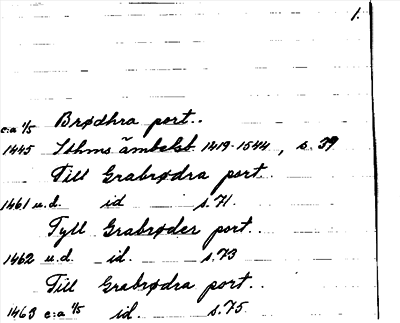 1.
c:a 1/5 Brødhra port..
1445 Sthms ämbetsb 1419-1544, s. 39
Till Grabrødra port..
1461 u.d. id s.71.
Tyll Grabrøder port..
1462 u.d. id. s.73
Till Grabrødra port..
1463 c:a 1/5 id. s.75.